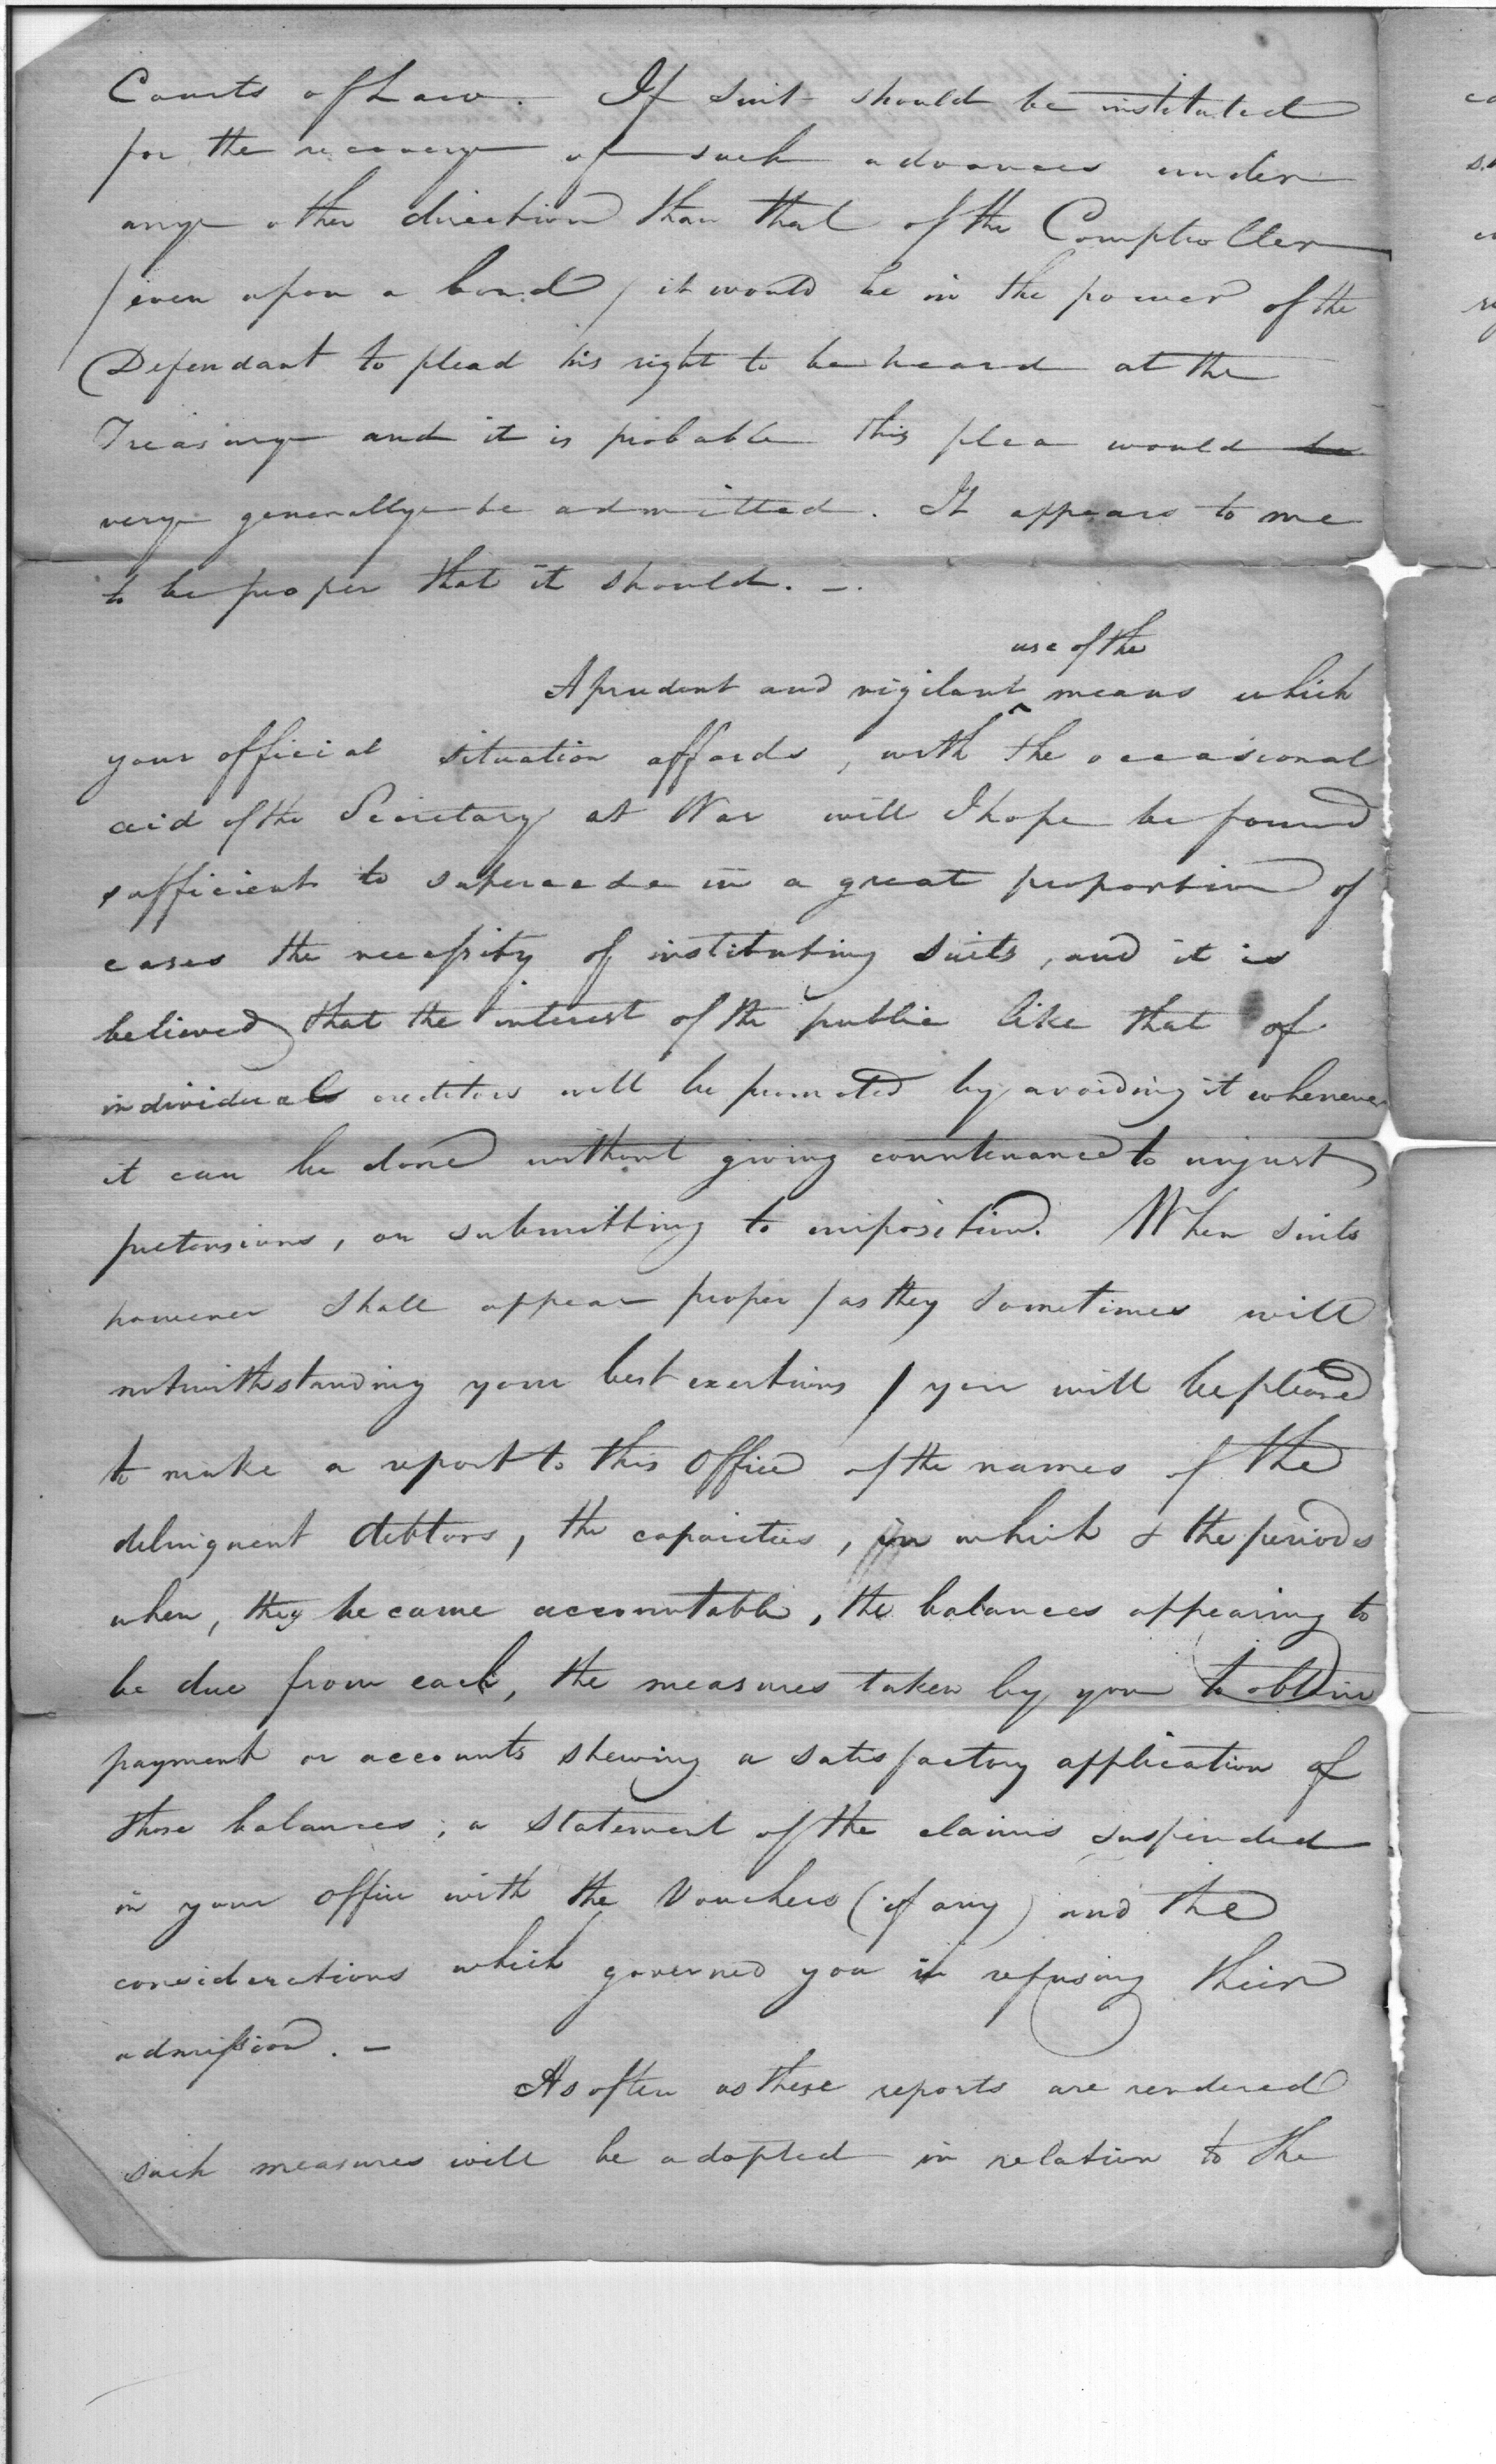 Courts of Law. If suit should be instituted
for the recovery of such advances under
any other direction than that of the Comptroller
/even upon a bond/ it would be in the power of the
Defendant to plead his right to be heard at the
Treasury and it is probable this plea would be
very generally be admitted. It appears to me
to be proper that it should. -.
use of the
A prudent and vigilant ^ means which
your official situation affords, with the occasional
aid of the Secretary at War will I hope be found
sufficient to supercede in a great proportion of
cases the necessity of instituting suits, and it is
believed that the interest of the public like that of
individuals creditors will be promoted by avoiding it whenever
it can be done without giving countenance to unjust
pretensions, or submitting to imposition. When suits
however shall appear proper /as they sometimes will
notwithstanding your best exertions/ you will be pleased
to make a report to this Office of the names of the
delinquent debtors, the capacities, in which & the periods
when, they became accountable, the balances appearing to
be due from each, the measures taken by you to obtain
payment or accounts shewing a satisfactory application of
those balances; a statement of the claims suspended
in your office with the Vouchers (if any) and the
considerations which governed you in refusing their
admission. -
As often as these reports are rendered
such measures will be adopted in relation to the